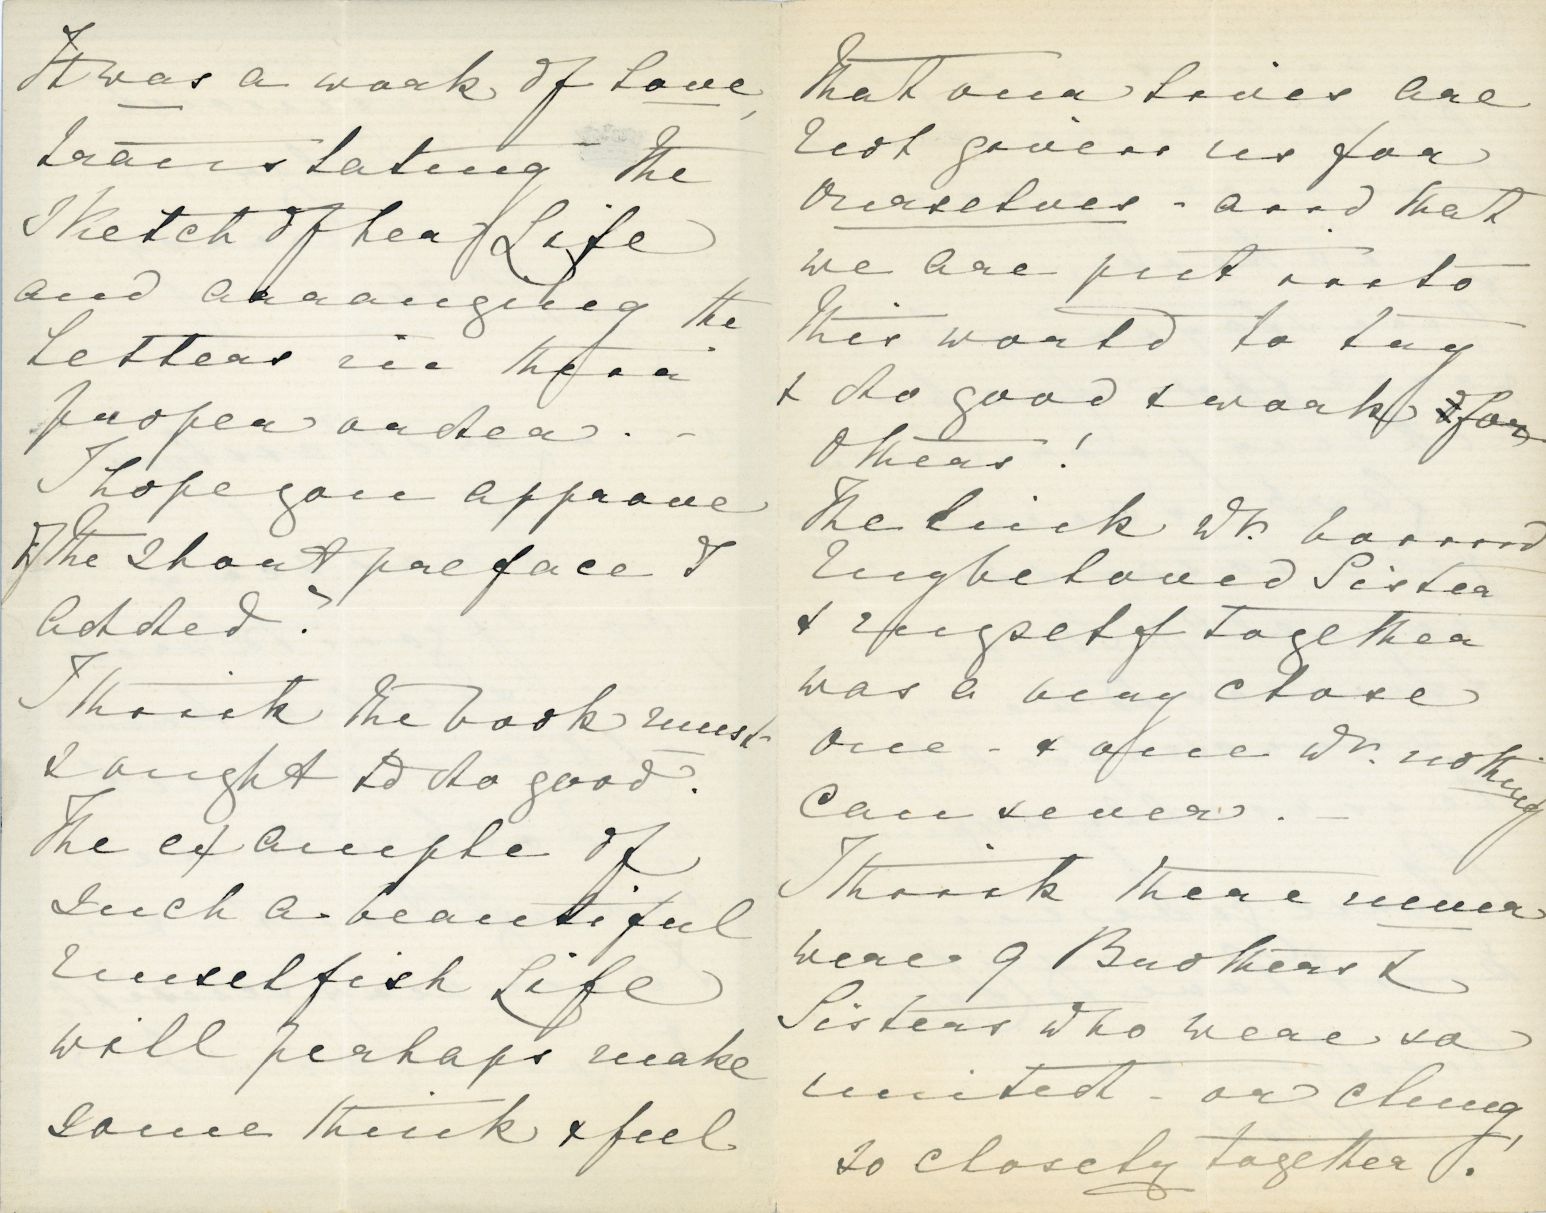 It was a work of love,
translating the
Sketch of her Life
and arranging the
Letters in their
proper order. -
I hope you approve
of the short preface I
added?
I think the book must
& ought to do good.
The example of
such a beautiful
unselfish Life
will perhaps make
some think & feel
that our lives are
not given us for
ourselves - and that
we are put into
this world to try
& do good & work for
others!
The link wh. bound
my beloved Sister
& myself together
was a very close
one - & one wh. nothing
can sever. -
I think there never
were 9 Brothers &
Sisters who were so
united - or clung
so closely together!